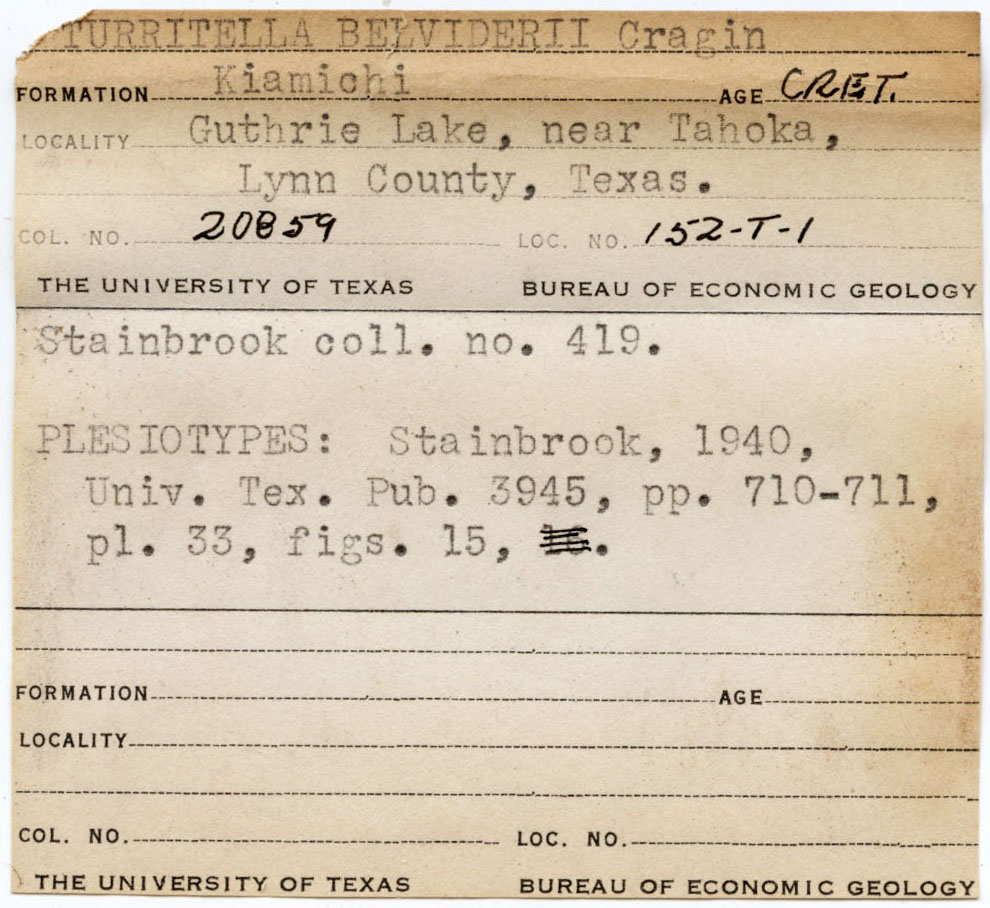 TURRITELLA BELVIDERII Cragin
FORMATION Kiamichi AGE CRET.
LOCALITY Guthrie Lake, near Tahoka,
Lynn County, Texas.
COL. NO. 20859 LOC. NO. 152-T-1
THE UNIVERSITY OF TEXAS BUREAU OF ECONOMIC GEOLOGY
Stainbrook coll. no. 419.
PLESIOTYPES: Stainbrook, 1940,
Univ. Tex. Pub. 3945, pp. 710-711,
pl. 33, figs. 15, 16.
FORMATION AGE
LOCALITY
COL. NO. LOC. NO.
THE UNIVERSITY OF TEXAS BUREAU OF ECONOMIC GEOLOGY